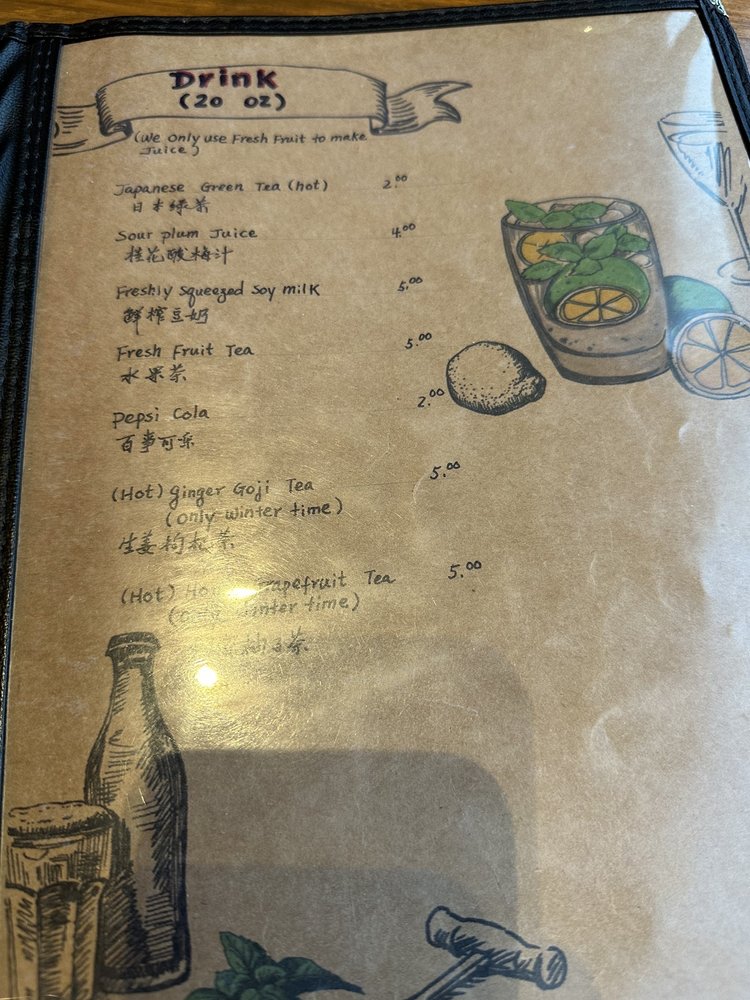 Drink
(20 oz)
(We only use Fresh Fruit to make
Juice)
Japanese Green Tea (hot) 2.00
日本绿茶
Sour plum Juice 4.00
桂花酸梅汁
Freshly Squeezed Soy milk 5.00
鲜榨豆奶
Fresh Fruit Tea 5.00
水果茶
Pepsi Cola 2.00
百事可乐
(Hot) ginger Goji Tea 5.00
(only winter time)
生姜枸杞茶
(Hot) Grapefruit Tea 5.00
(only winter time)
柚子茶